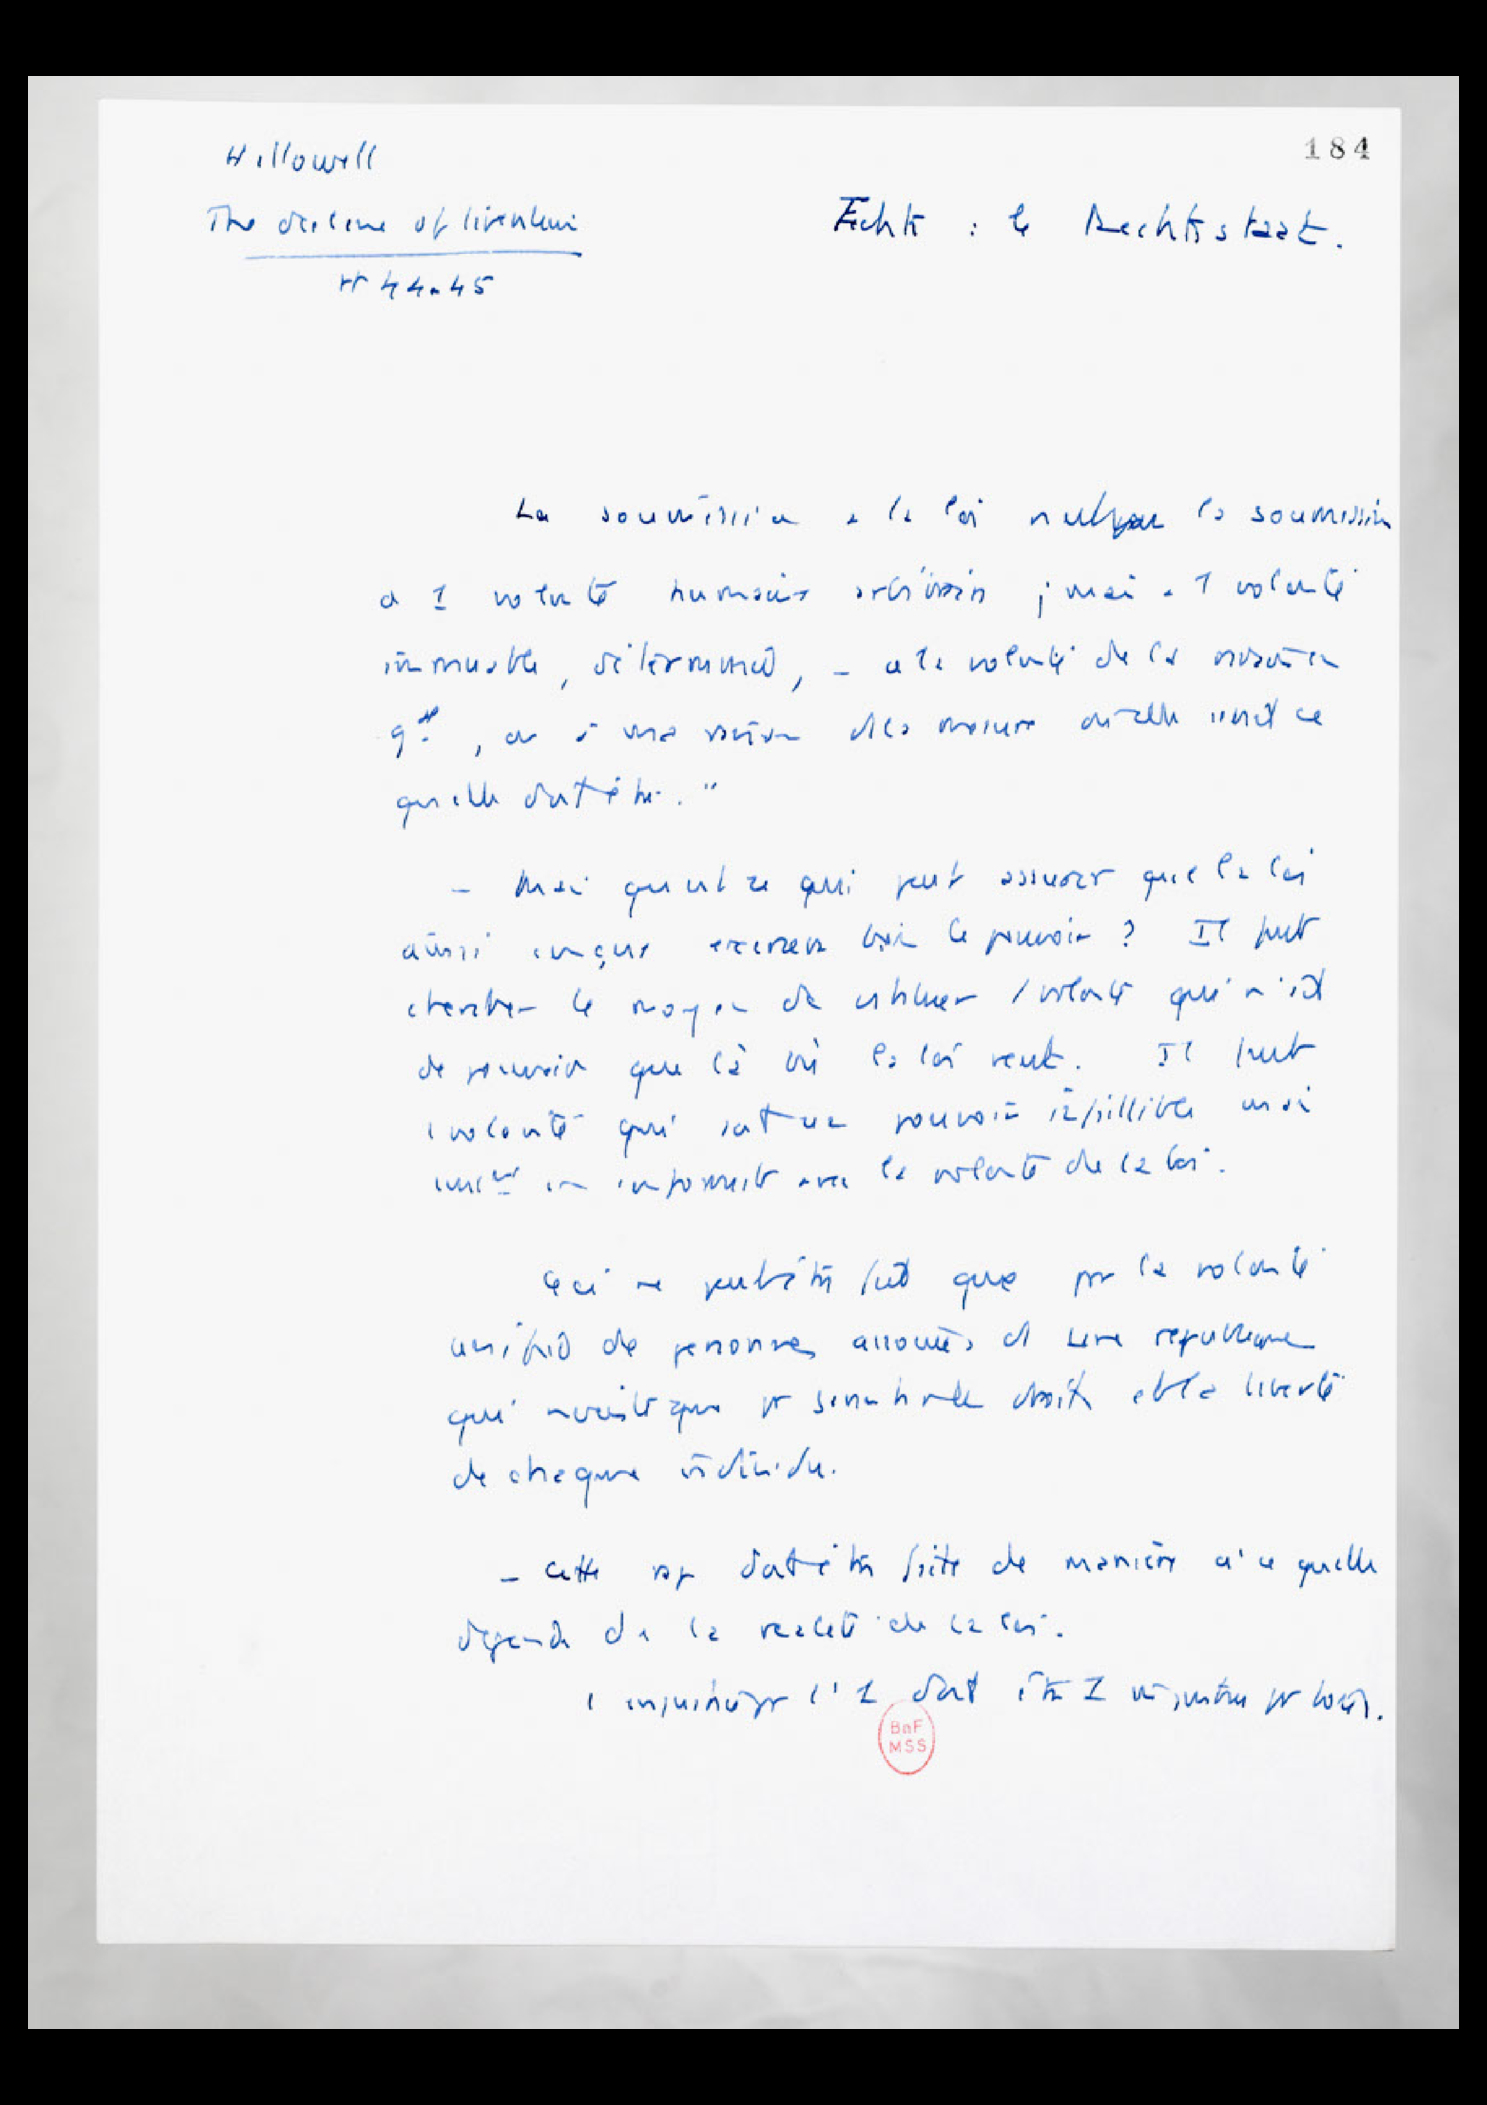 184
Hallowell
The decline of liberalism
pp 44-45
Fichte : le Rechtsstaat.
La soumission a la loi n'est pas la soumission
a 1 volonté humaine arbitraire ; mais a 1 volonté
immuable, déterminée, – a la volonté de la raison en
gal, ou à une raison ds la mesure où elle veut ce
qu'elle doit être."
– Mais qu'est ce qui peut assurer que la loi
ainsi conçue exercera bien le pouvoir ? Il faut
chercher le moyen de utiliser 1 volonté qui n'ait
de pouvoir que là où la loi veut. Il faut
1 volonté qui soit un pouvoir infaillible mais
en conformité avec la volonté de la loi.
Ceci ne peut être fait que par la volonté
unifiée de personnes associées ds une république
qui n'existe que pr les droits et la liberté
de chaque individu.
– Cette rep doit être faite de manière à ce qu'elle
dépende de la réalité de la loi.
1 injustice pr l' 1 doit être 1 injustice pr tous.
BnF
MSS